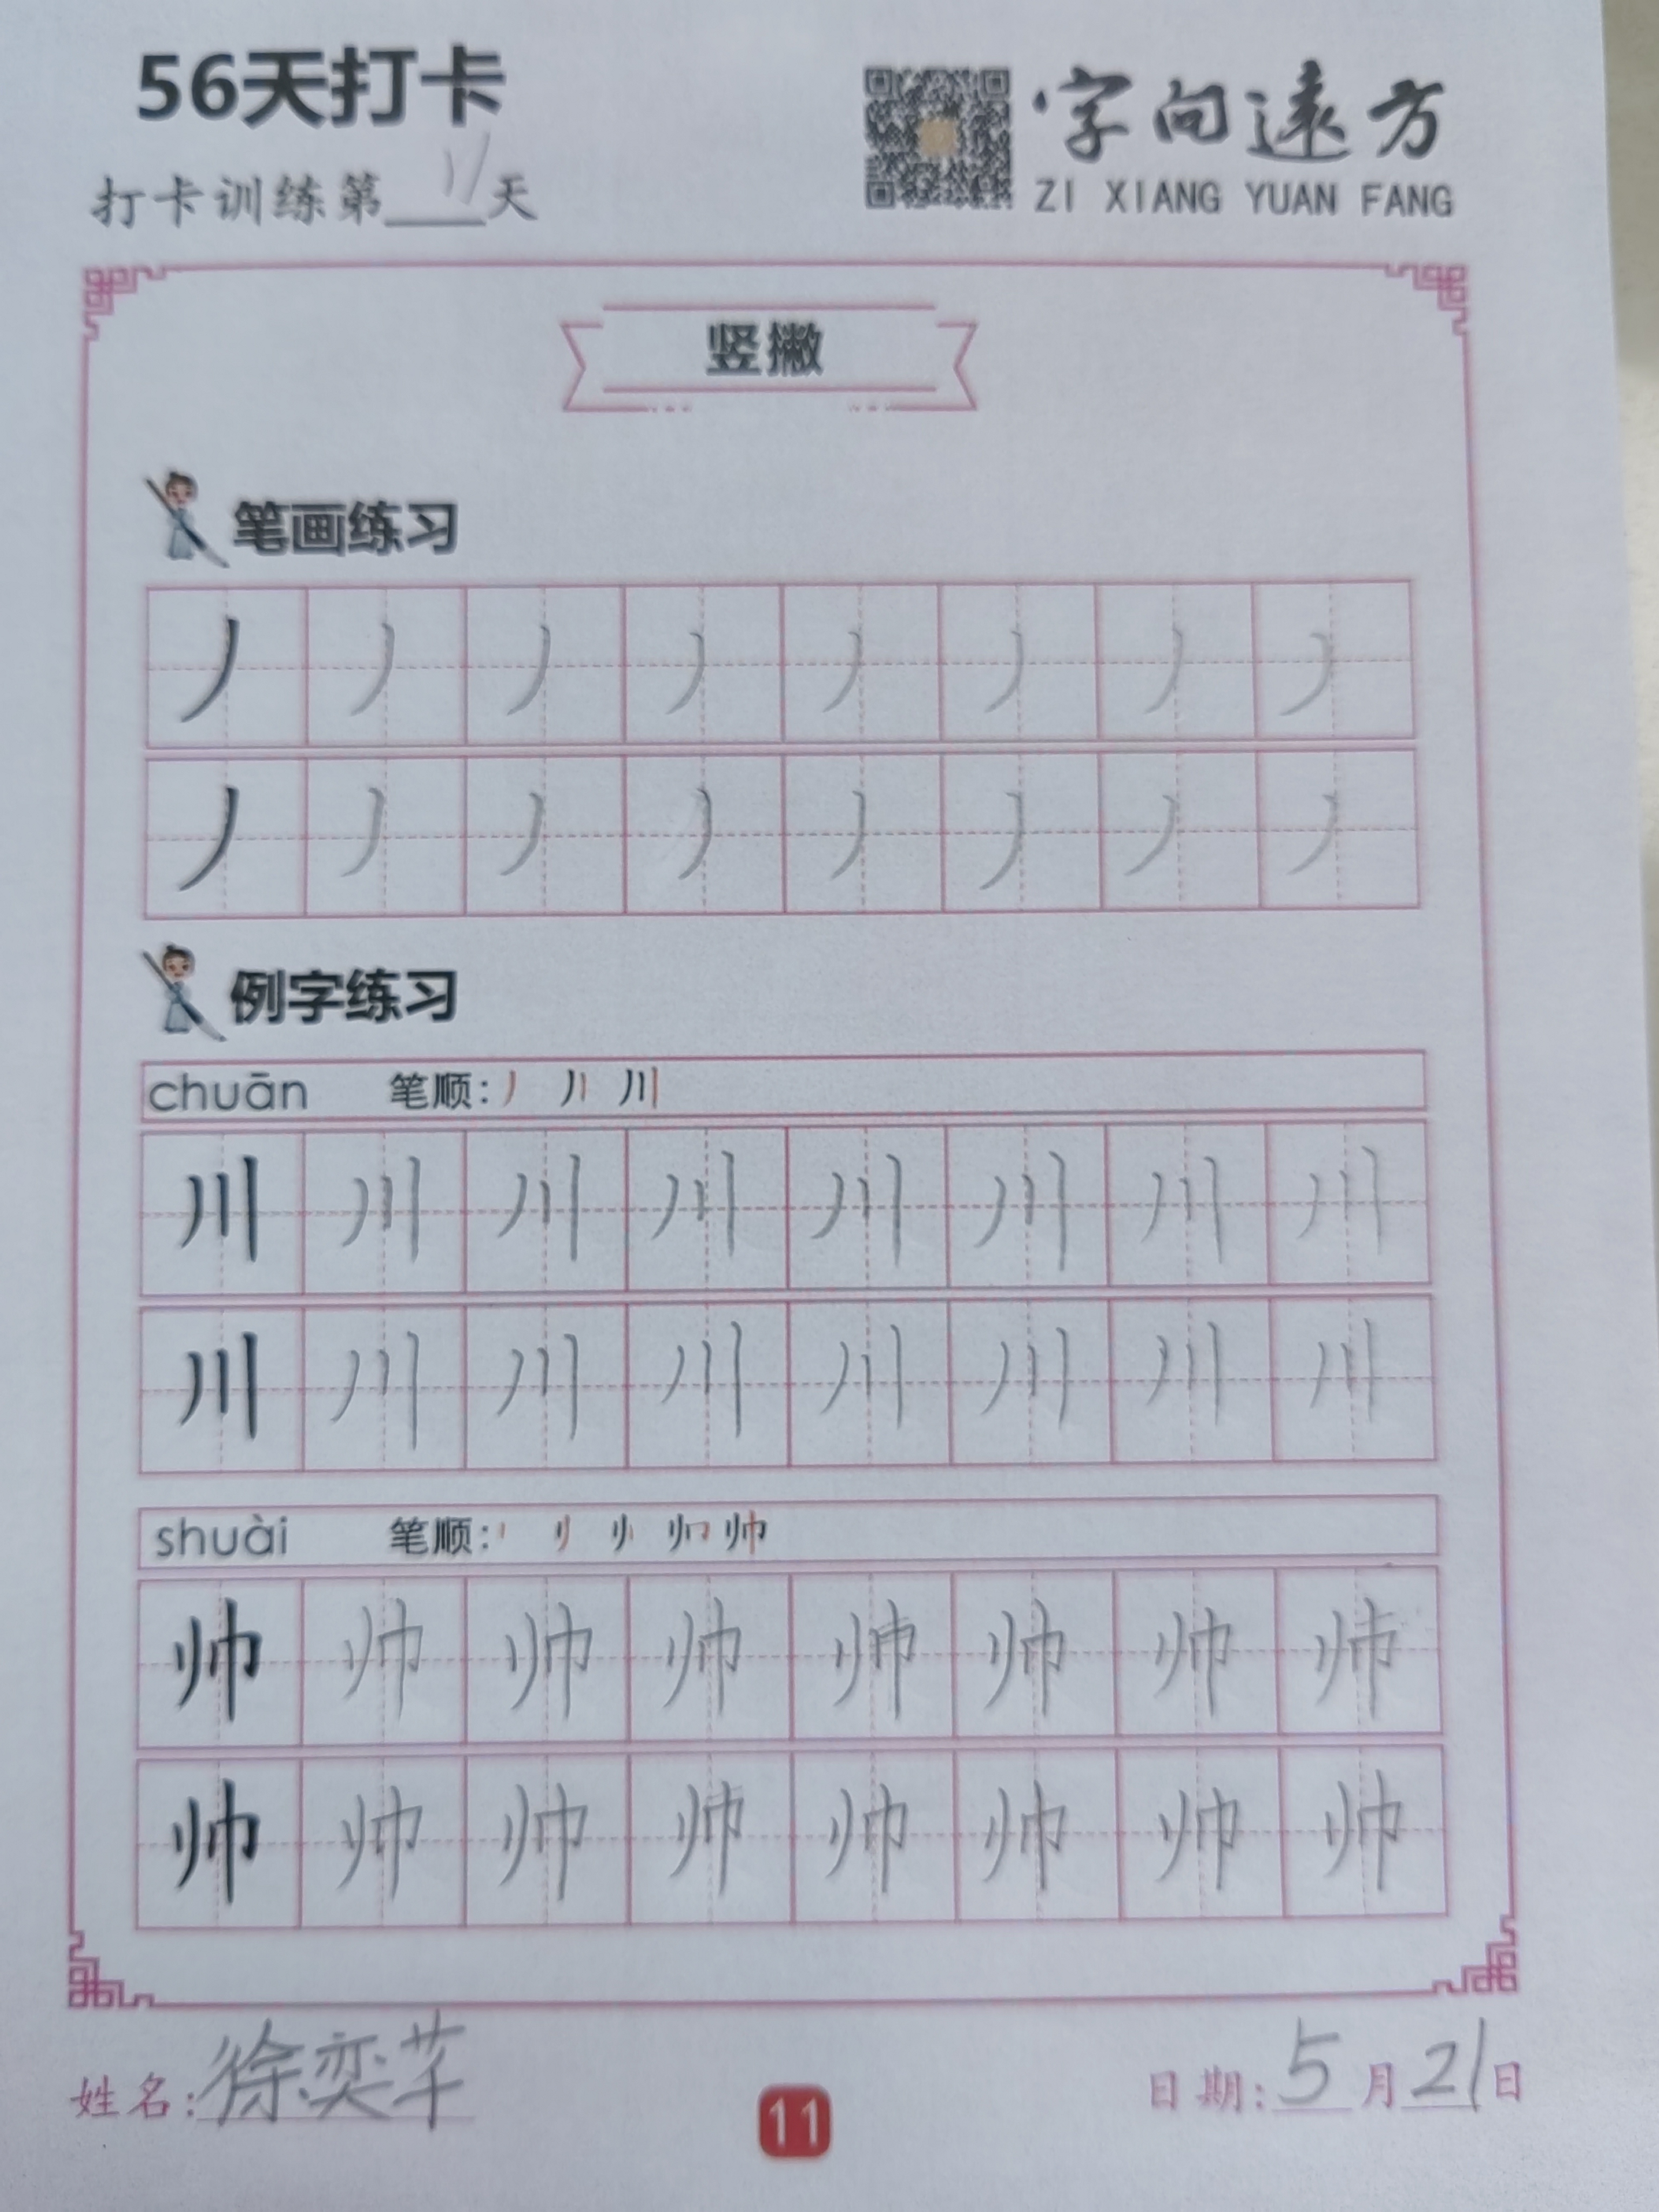 56天打卡
字向遠方
打卡训练第11天
ZI XIANG YUAN FANG
竖撇
笔画练习
丿 丿 丿 丿 丿 丿 丿 丿
丿 丿 丿 丿 丿 丿 丿 丿
例字练习
chuān 笔顺: 丿 丿丨 川
川 川 川 川 川 川 川 川
川 川 川 川 川 川 川 川
shuài 笔顺: 帅
帅 帅 帅 帅 帅 帅 帅 帅
帅 帅 帅 帅 帅 帅 帅 帅
姓名: 徐奕芊
日期: 5月21日
11